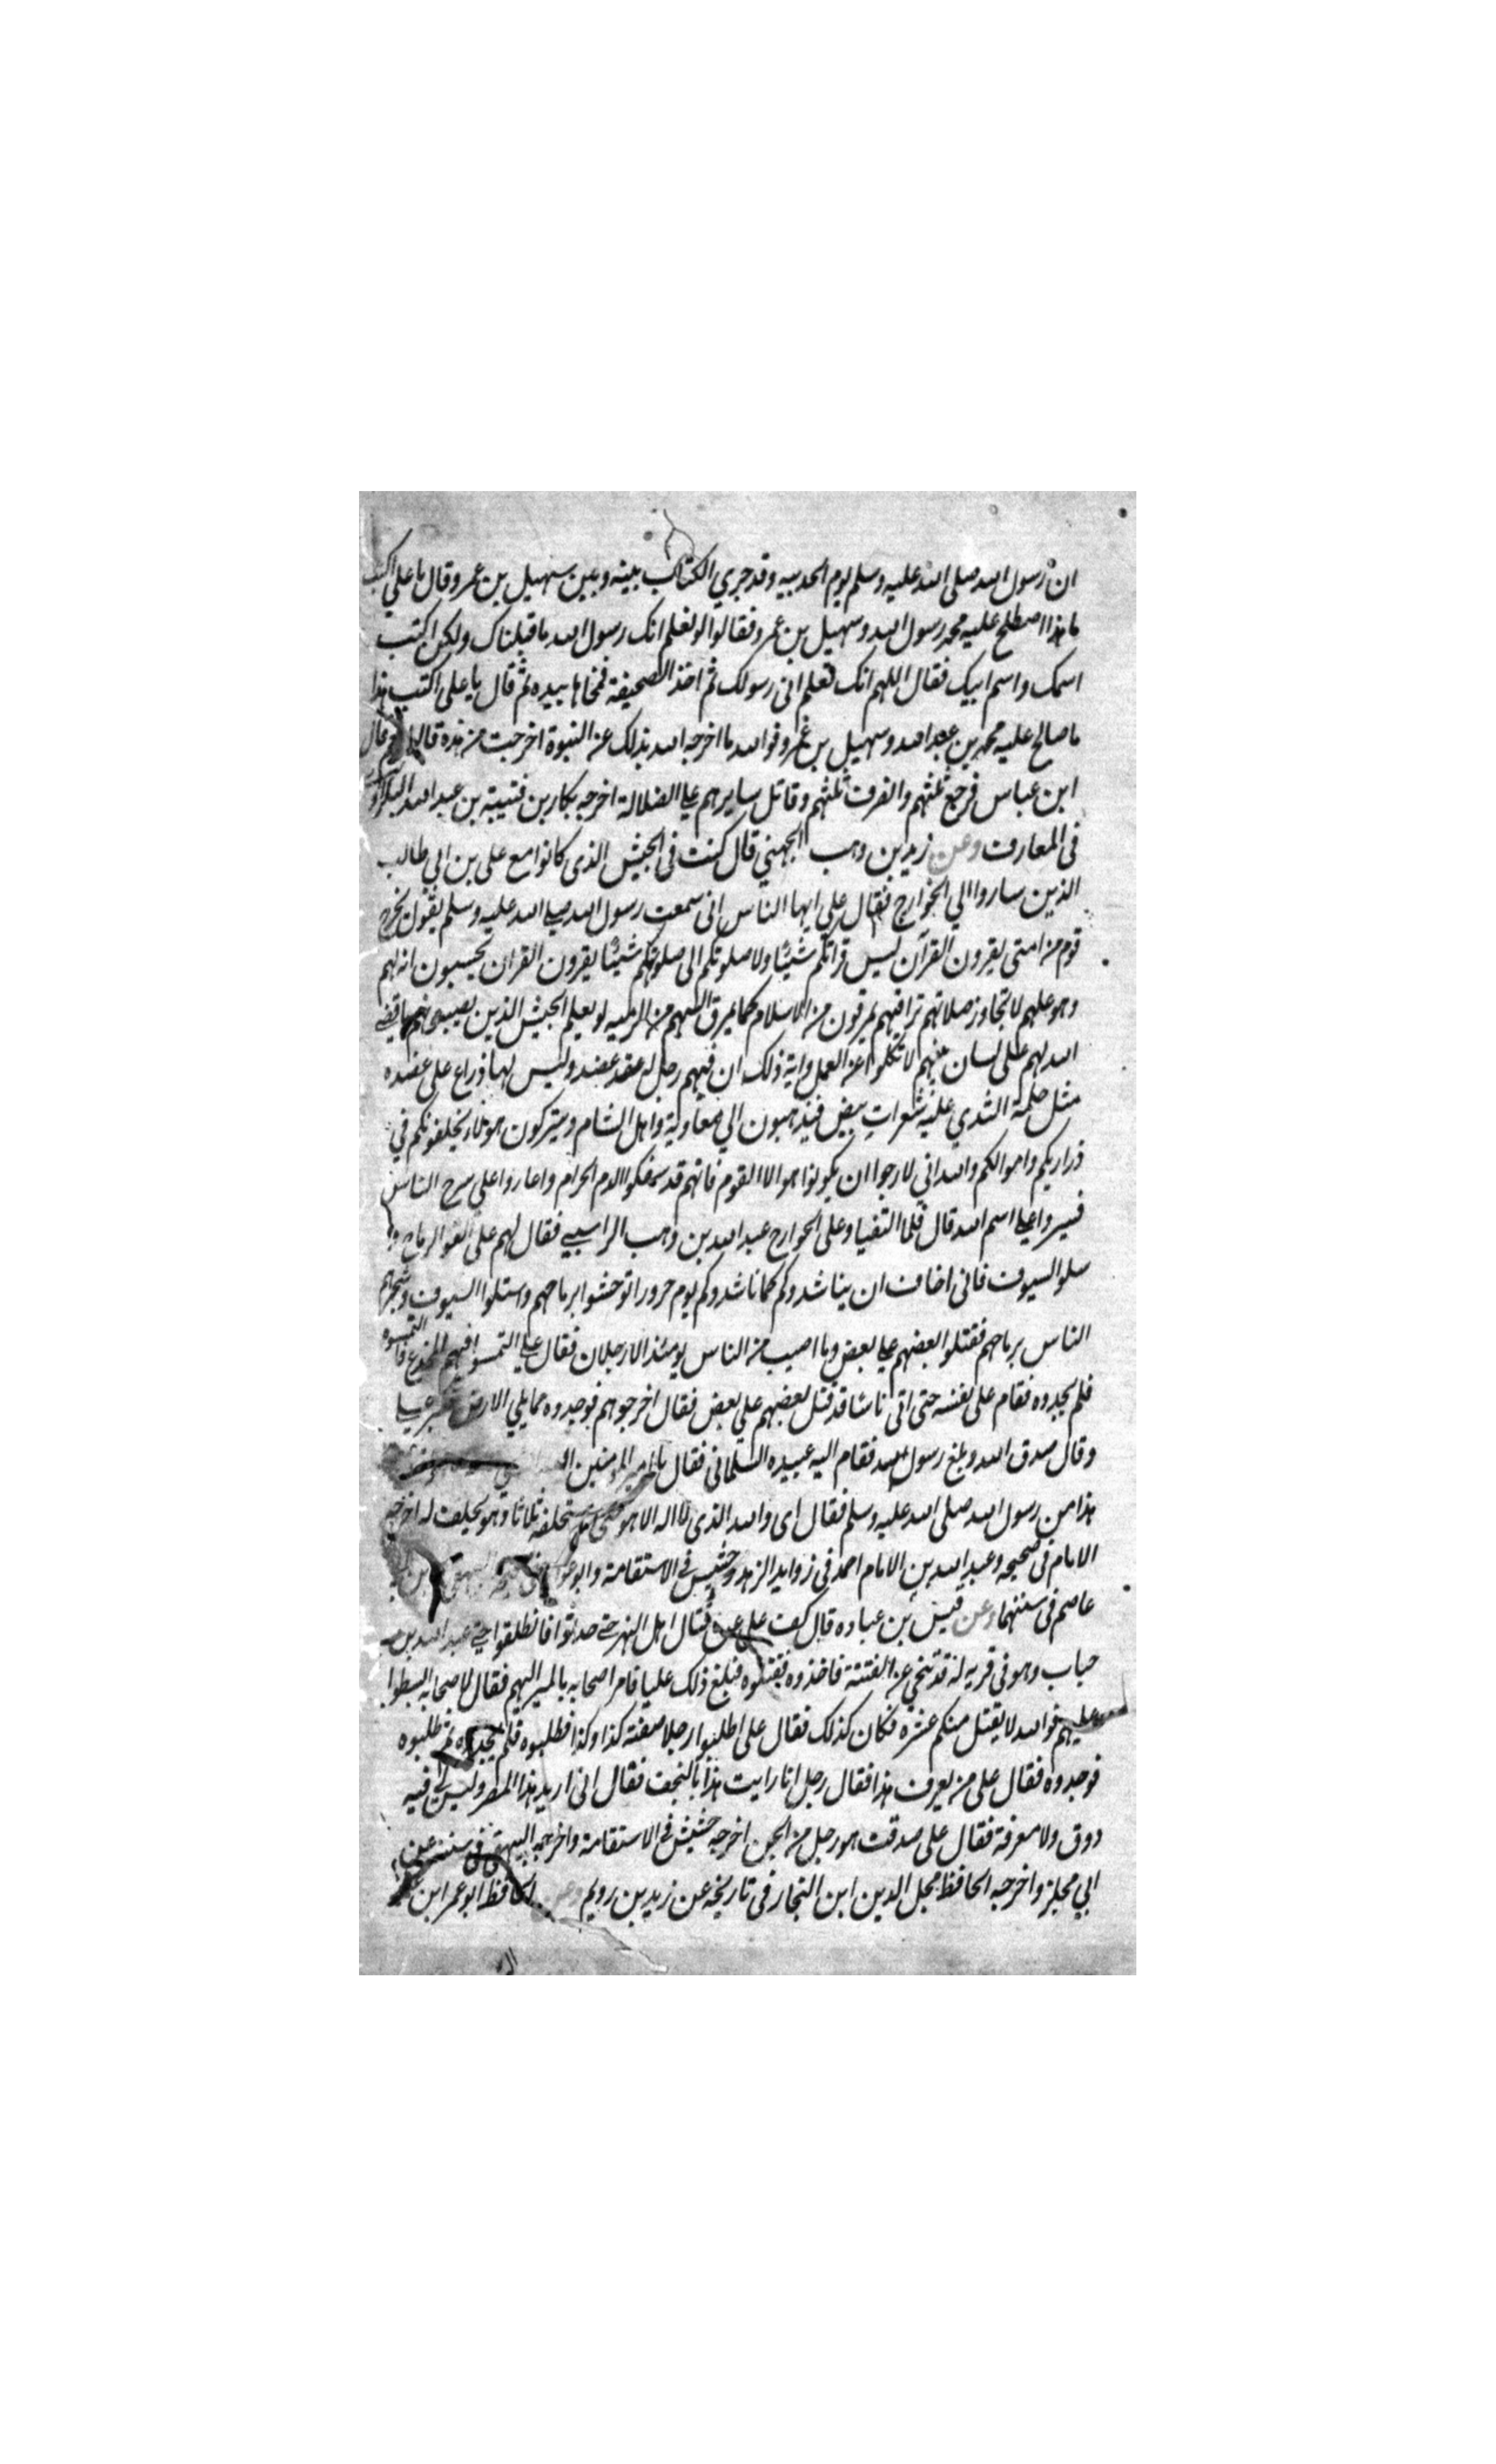 ان رسول الله صلى الله عليه وسلم يوم الحديبيه وقد جري الكتاب بينه وبين سهيل بن عمرو قال يا علي اكتب
ما هذا اصطلح عليه محمد رسول الله وسهيل بن عمرو فقالوا لو نعلم انك رسول الله ما قبلناك ولكن اكتب
اسمك واسم ابيك فقال اللهم انك تعلم انى رسولك ثم اخذ الصحيفة فمحاها بيده ثم قال يا على اكتب هذا
ما صالح عليه محمد بن عبد الله وسهيل بن عمرو فوالله ما اخرجه الله بذلك عن النبوة اخرجت من هذه قالوا نعم قال
ابن عباس فرجع ثلثهم وانصرف ثلثهم وقاتل سايرهم على الضلالة اخرجه بكار بن قتيبة بن عبد الله البكراوي
فى المعارف وعن زيد بن وهب الجهني قال كنت فى الجيش الذى كانوا مع على بن ابي طالب
الذين ساروا الي الخوارج فقال علي ايها الناس انى سمعت رسول الله صلى الله عليه وسلم يقول يخرج
قوم من امتى يقرون القرآن ليس قراتكم شيئا ولا صلوتكم الى صلوتهم شيئا يقرون القران يحسبون انه لهم
وهو عليهم لا تجاوز صلاتهم تراقيهم يمرقون من الاسلام كما يمرق السهم من الرميه لو يعلم الجيش الذين يصيبونهم ما قضى
الله لهم على لسان نبيهم لا تكلوا عن العمل واية ذلك ان فيهم رجل له عضد وليس لها ذراع على عضده
مثل حلمة الثدي عليه شعرات بيض فيذهبون الي معاوية واهل الشام ويتركون هولاء يخلفونكم في
ذراريكم واموالكم والله اني لارجوا ان يكونوا هوالا القوم فانهم قد سفكوا الدم الحرام واغاروا علي سرح الناس
فسيروا على اسم الله قال فلما التقينا وعلى الخوارج عبد الله بن وهب الراسبي فقال لهم على القوا الرماح و
سلوا السيوف فانى اخاف ان يناشدوكم كما ناشدوكم يوم حرورا فوحشوا برماحهم واستلوا السيوف وشجرهم
الناس برماحهم فقتلوا بعضهم على بعض وما اصيب من الناس يومئذ الا رجلان فقال على التمسوا فيهم المخدج فالتمسوه
فلم يجدوه فقام على بنفسه حتى اتى ناسا قد قتل بعضهم علي بعض فقال اخرجوهم فوجدوه مما يلي الارض فكبر على
وقال صدق الله وبلغ رسول الله فقام اليه عبيده السلمانى فقال يا امير المومنين
هذا من رسول الله صلى الله عليه وسلم فقال اى والله الذى لا اله الا هو حتى استحلفه ثلاثا وهو يحلف له اخرجه
الامام فى صحيحه وعبد الله بن الامام احمد فى زوايد الزهد وخشيش فى الاستقامة وابو عوانه البيهقي
عاصم فى سننهما وعن قيس بن عباده قال كف على عن قتال اهل النهر حتى حدثوا فانطلقوا حتى عبد الله بن
خباب وهو فى قريه له قد تنحى عن الفتنة فاخذوه فقتلوه فبلغ ذلك عليا فامر اصحابه بالمسير اليهم فقال لاصحابه ابسطوا
عليهم فوالله لا يقتل منكم عشره فكان كذلك فقال على اطلبوا رجلا صفته كذا وكذا فطلبوه فلم يجدوه ثم طلبوه
فوجدوه فقال على من يعرف هذا فقال رجل انا رايت هذا بالنجف فقال انى اريد هذا المصر وليس لى فيه
ذوق ولا معرفة فقال على صدقت هو رجل من الجن اخرجه خشيش فى الاستقامة واخرجه البيهقى فى سننه عن
ابي مجلز واخرجه الحافظ محل الدين ابن النجار فى تاريخه عن زيد بن رويم وعن الحافظ ابو عمر ابن